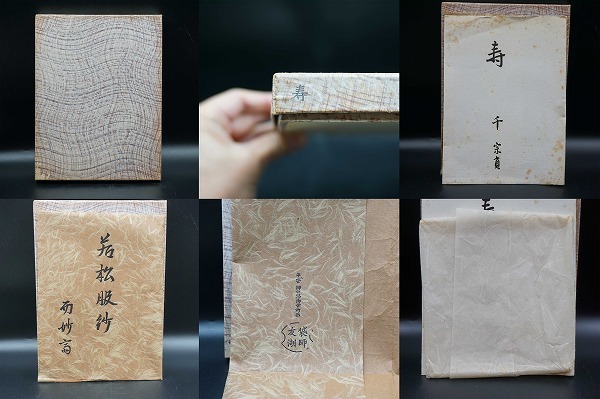 寿
寿
千宗員
若松服紗
而妙斎
袋師
友湖